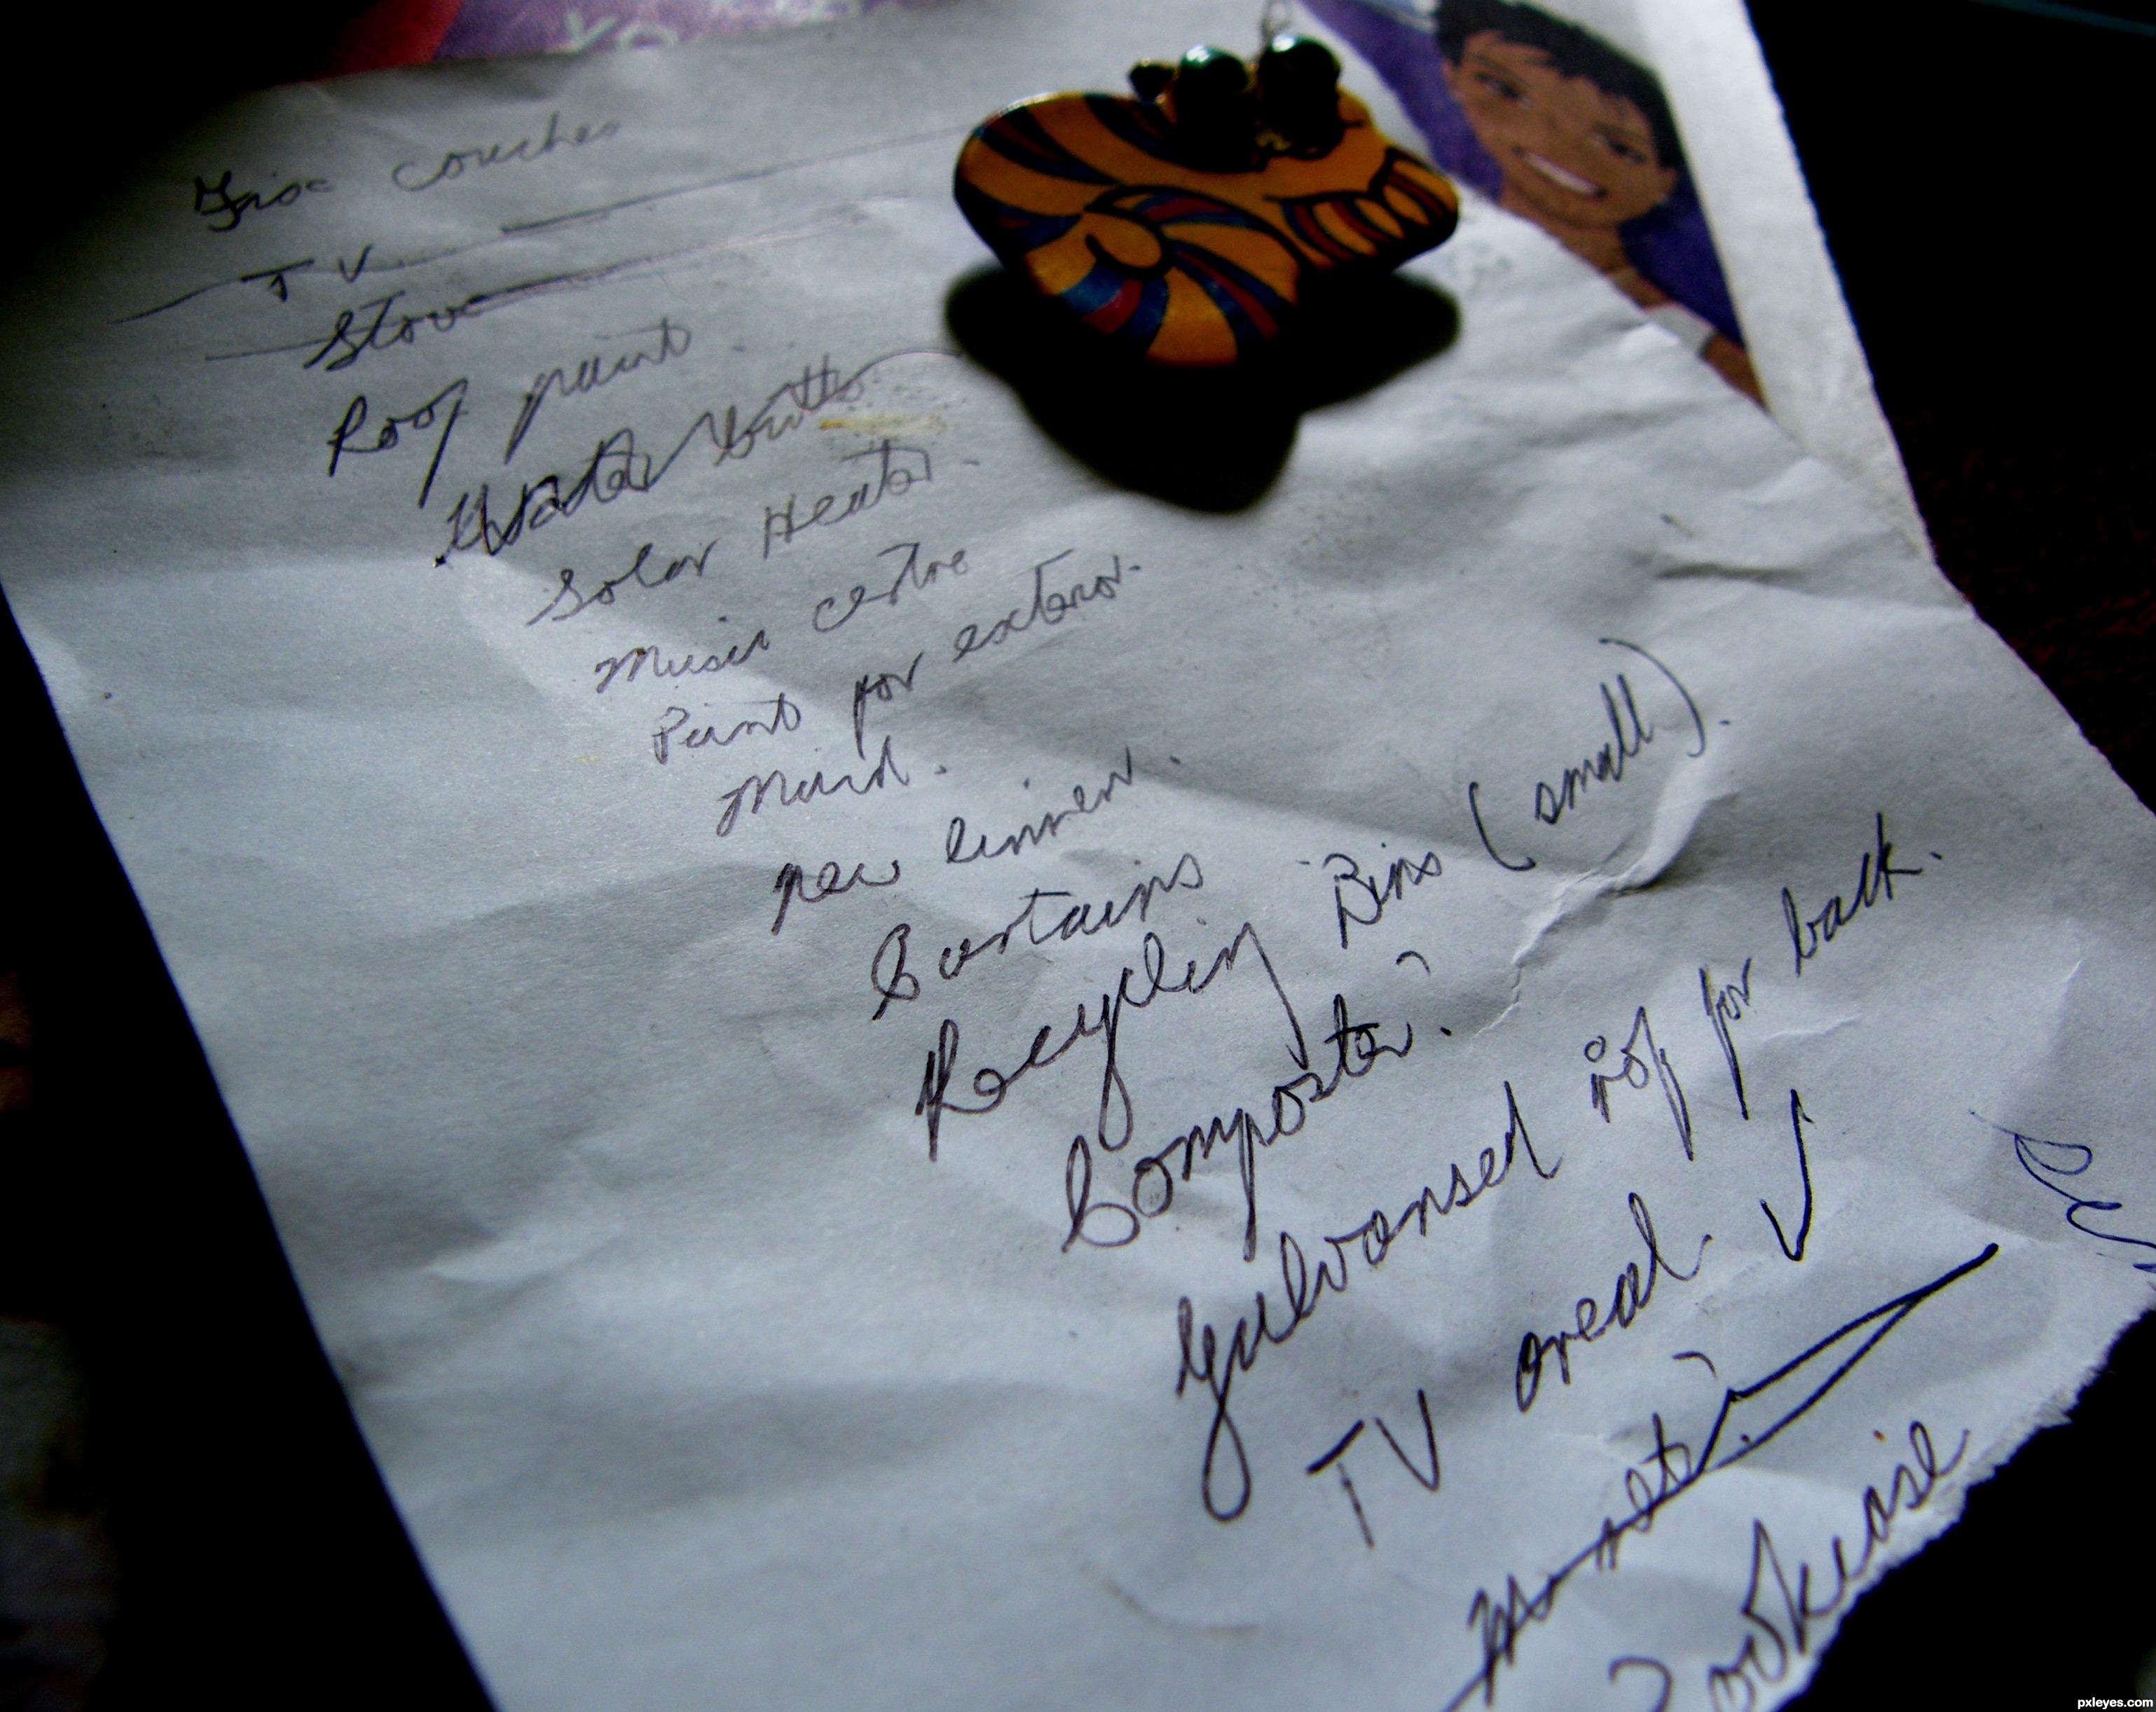 Fix couches
TV
Stove
Roof paint
Water butts
Solar Heater.
Music centre
Paint for exterior.
Maid.
new linnen.
Curtains
Recycling Bins (small).
Composter.
Galvansed roof for back.
TV areal. ✓
Bookcase
pxleyes.com